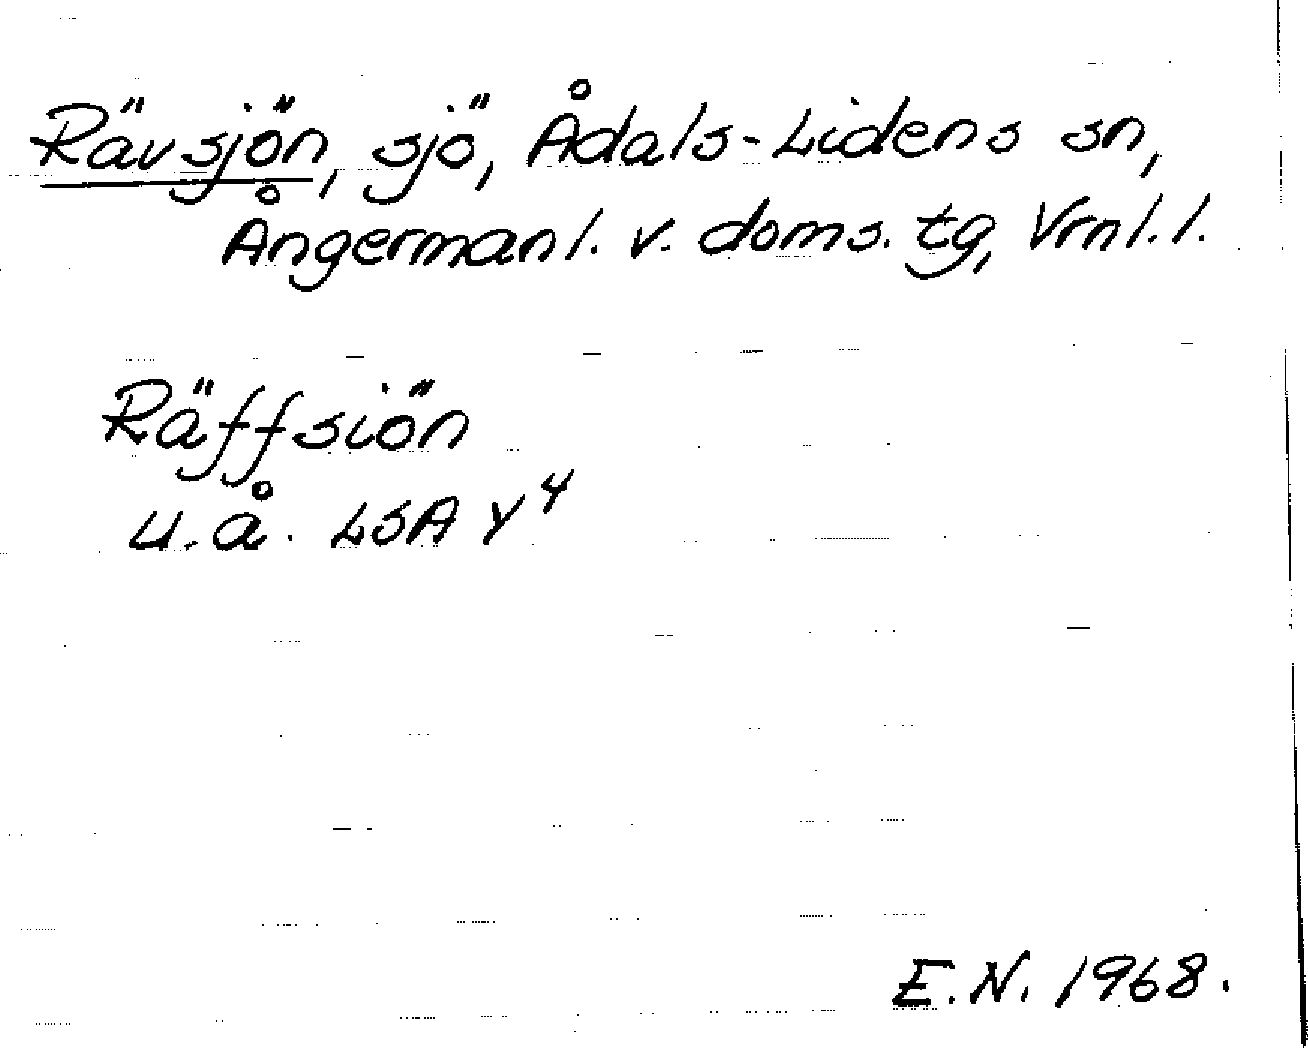 Rävsjön, sjö, Ådals-Lidens sn,
Ångermanl. v. doms. tg, Vrnl. l.
Räffsiön
u.å. LSA Y⁴
E.N. 1968.